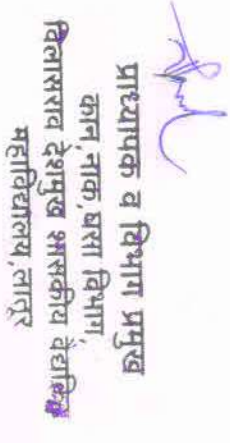 प्राध्यापक व विभाग प्रमुख
कान,नाक,घसा विभाग,
विलासराव देशमुख शासकीय वैद्यकिय
महाविद्यालय,लातूर